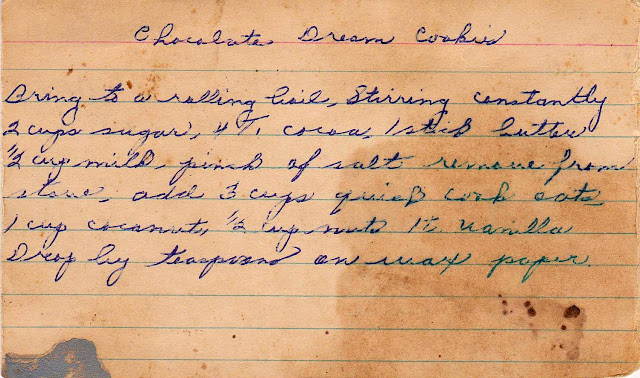 Chocolate Dream Cookies
Bring to a rolling boil, Stirring constantly
2 cups sugar, 4 T, cocoa, 1 stick butter
1/2 cup milk, pinch of salt remove from
stove, add 3 cups quick cook oats
1 cup coconut, 1/2 cup nuts 1 t. vanilla
Drop by teaspoons on wax paper